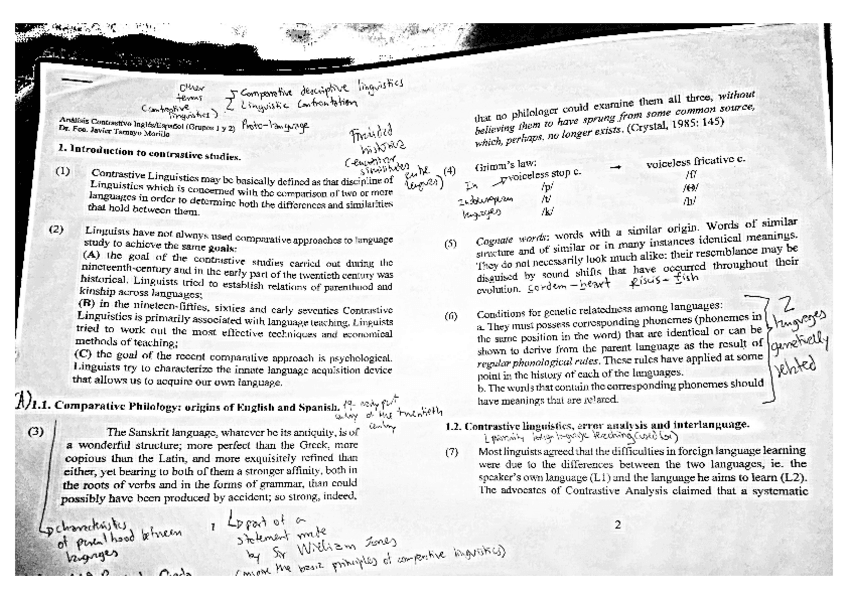 Other
terms
Comparative descriptive linguistics
Linguistic Confrontation
(Contrastive
linguistics)
Análisis Contrastivo Inglés/Español (Grupos 1 y 2)
Proto-language
Dr. Fco. Javier Tamayo Morillo
1. Introduction to contrastive studies.
(1) Contrastive Linguistics may be basically defined as that discipline of
Linguistics which is concerned with the comparison of two or more
languages in order to determine both the differences and similarities
that hold between them.
(2) Linguists have not always used comparative approaches to language
study to achieve the same goals:
(A) the goal of the contrastive studies carried out during the
nineteenth-century and in the early part of the twentieth century was
historical. Linguists tried to establish relations of parenthood and
kinship across languages;
(B) in the nineteen-fifties, sixties and early seventies Contrastive
Linguistics is primarily associated with language teaching. Linguists
tried to work out the most effective techniques and economical
methods of teaching;
(C) the goal of the recent comparative approach is psychological.
Linguists try to characterize the innate language acquisition device
that allows us to acquire our own language.
A) 1.1. Comparative Philology: origins of English and Spanish.
early part
of the twentieth
century
(3) The Sanskrit language, whatever be its antiquity, is of
a wonderful structure; more perfect than the Greek, more
copious than the Latin, and more exquisitely refined than
either, yet bearing to both of them a stronger affinity, both in
the roots of verbs and in the forms of grammar, than could
possibly have been produced by accident; so strong, indeed,
characteristics
of parenthood between
languages
part of a
statement made
by Sir William Jones
the basic principles of comparative linguistics)
that no philologer could examine them all three, without
believing them to have sprung from some common source,
which, perhaps, no longer exists. (Crystal, 1985: 145)
(4) Grimm's law:
voiceless stop c. → voiceless fricative c.
In
Indoeuropean
languages
/p/ /f/
/t/ /θ/
/k/ /h/
(5) Cognate words: words with a similar origin. Words of similar
structure and of similar or in many instances identical meanings.
They do not necessarily look much alike: their resemblance may be
disguised by sound shifts that have occurred throughout their
evolution. cordem - heart piscis - fish
(6) Conditions for genetic relatedness among languages:
a. They must possess corresponding phonemes (phonemes in
the same position in the word) that are identical or can be
shown to derive from the parent language as the result of
regular phonological rules. These rules have applied at some
point in the history of each of the languages.
b. The words that contain the corresponding phonemes should
have meanings that are related.
2
languages
genetically
related
1.2. Contrastive linguistics, error analysis and interlanguage.
(7) Most linguists agreed that the difficulties in foreign language learning
were due to the differences between the two languages, ie. the
speaker's own language (L1) and the language he aims to learn (L2).
The advocates of Contrastive Analysis claimed that a systematic
2